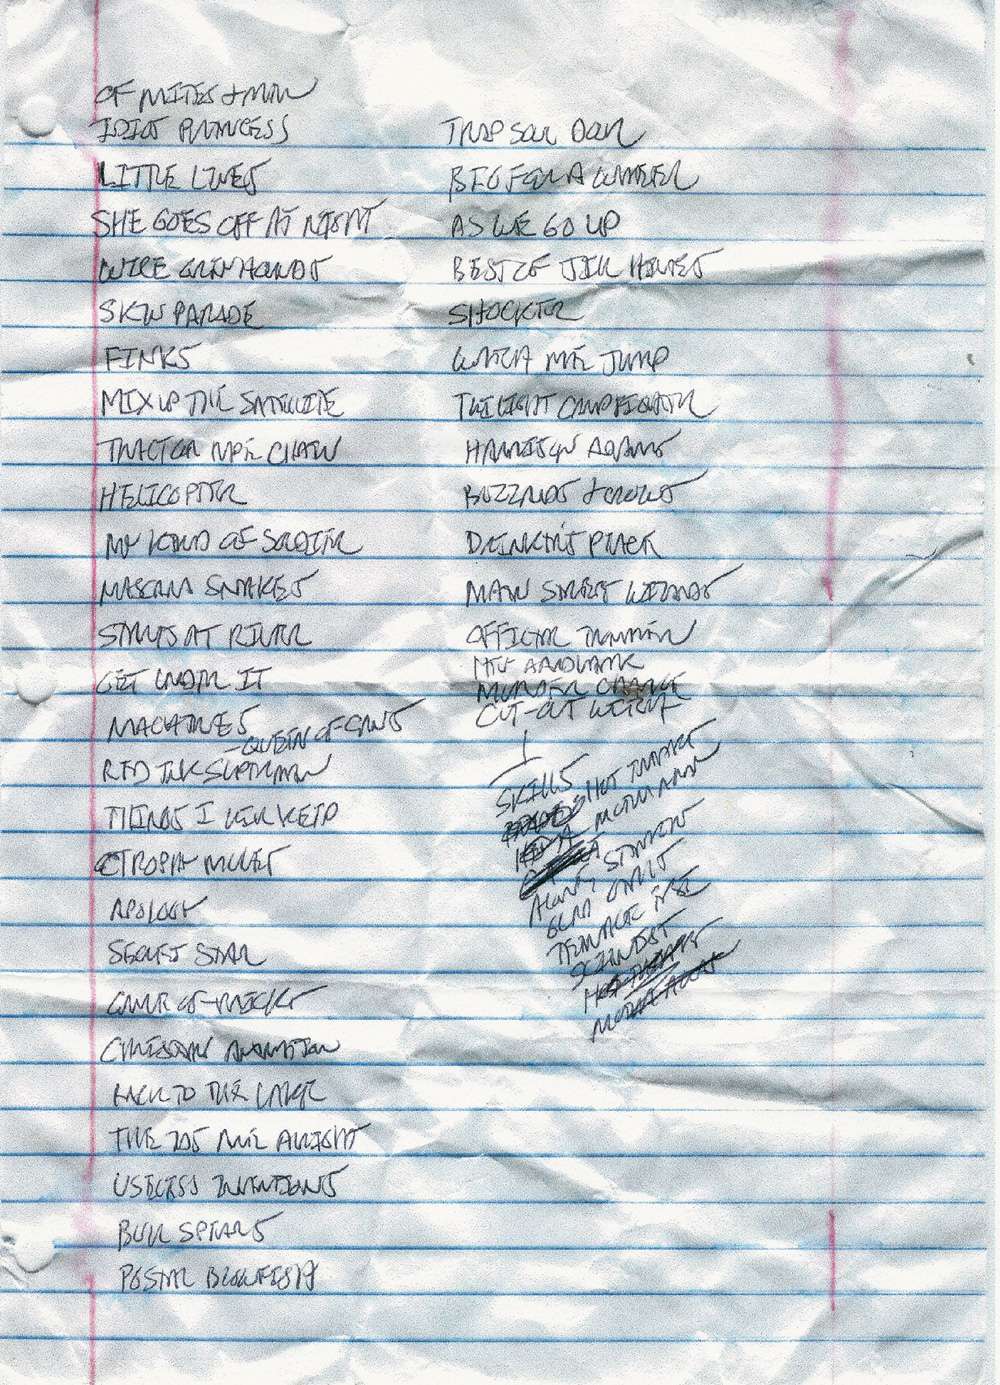 OF MITES + MEN
IDIOT PRINCESS
LITTLE LINES
SHE GOES OFF AT NIGHT
WIRE GREYHOUNDS
SKIN PARADE
FINKS
MIX UP THE SATELLITE
TRACTOR RAPE CHAIN
HELICOPTER
MY KIND OF SOLDIER
MASCARA SNAKES
STARTS AT RIVER
GET UNDER IT
MACHINES
- QUEEN OF CANS
RED INK SUPERMAN
THINGS I WILL KEEP
ATROPHY
APOLOGY
SECRET STAR
GAME OF PRICKS
CHRISTIAN ANIMATION
BACK TO THE LAKE
THE 205 ARE ALRIGHT
USELESS INVENTIONS
BULL SPEARS
POSTAL BLOWFISH
TRAP SOUL DOOR
BIG FOR A
AS WE GO UP
BEST OF JILL HIVES
SHOCKER
WATCH ME JUMP
TWILIGHT CAMPFIGHTER
HARRISON ADAMS
BUZZARDS + CROWS
DRINKER'S PEACE
MAIN STREET WIZARDS
OFFICIAL IRONMEN
MY AARDVARK
MURDER CHARGE
CUT-OUT WITCH
SKILLS
HOT FREAKS
MOTOR AWAY
ALONE, STINKING
GLAD GIRLS
TEENAGE FBI
SCIENTIST
HOT FREAKS
MOTOR AWAY